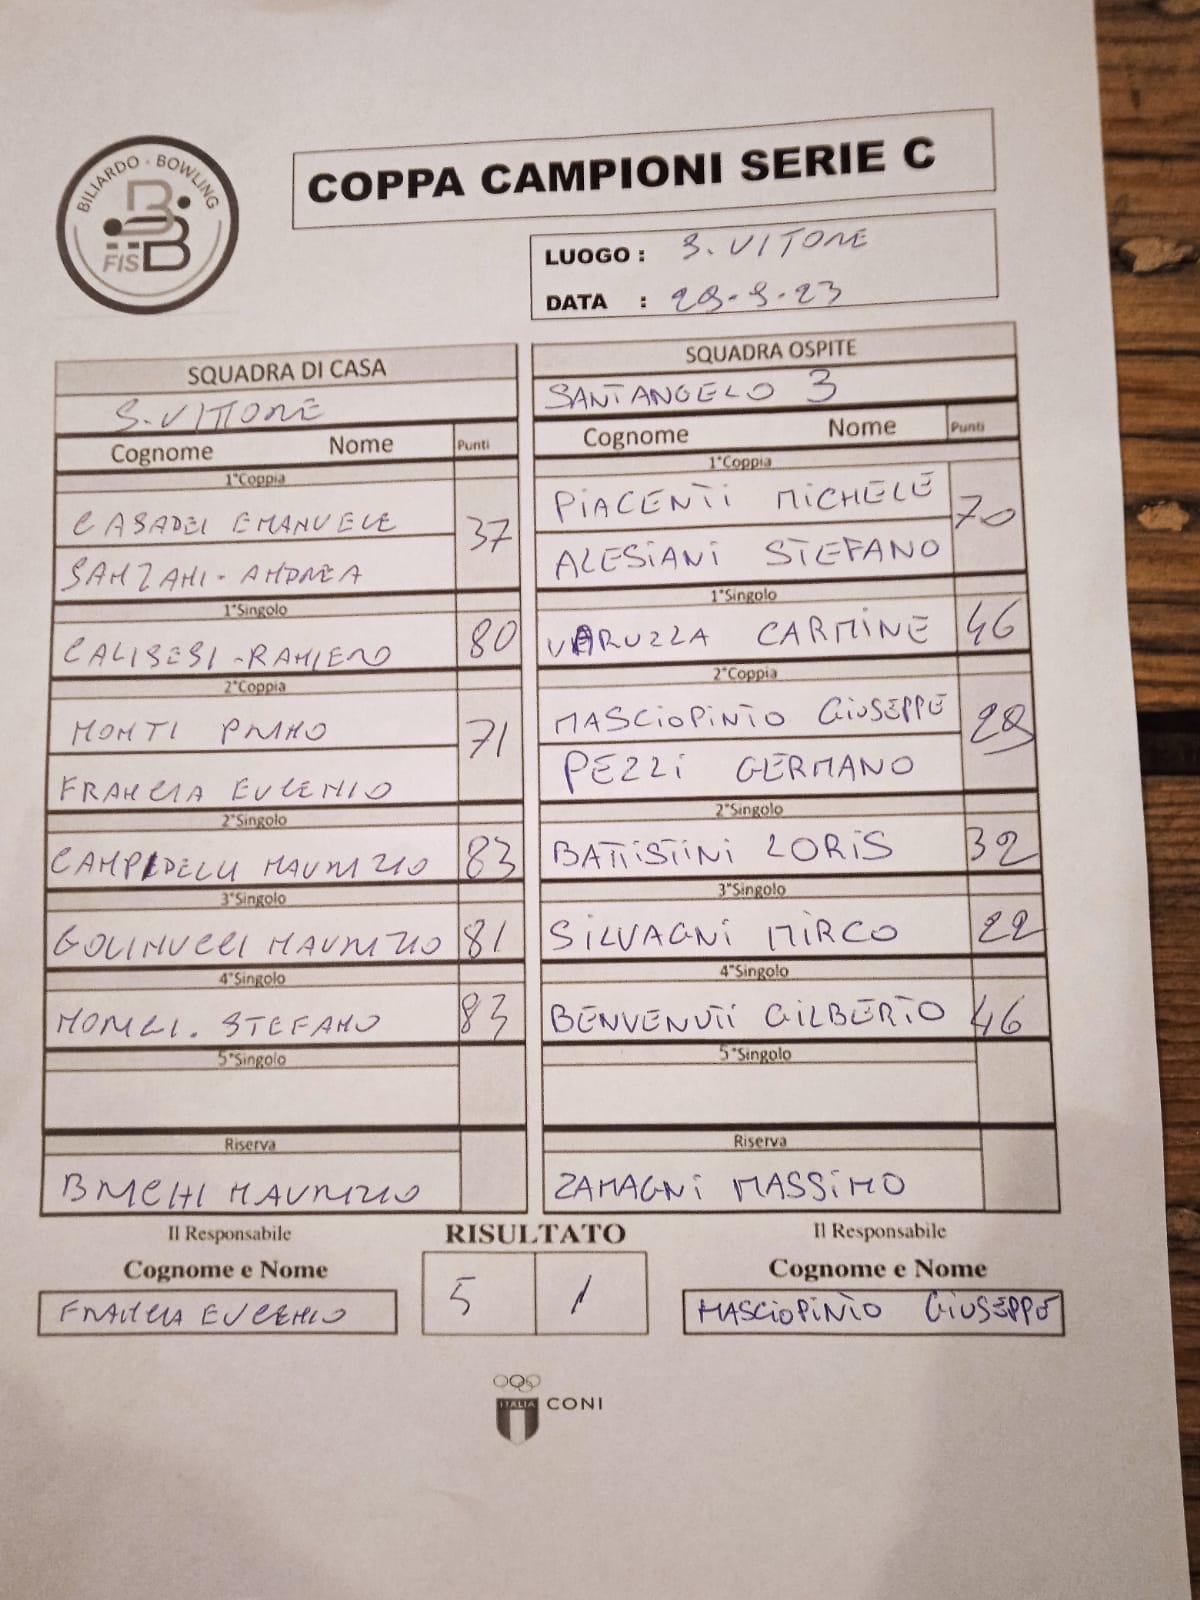 BILIARDO - BOWLING
FISBB
COPPA CAMPIONI SERIE C
LUOGO : S. VITORE
DATA : 29-9-23
SQUADRA DI CASA
S. VITTORE
Cognome Nome Punti
1°Coppia
CASADEI EMANUELE 37
SANZANI - ANDREA
1°Singolo
CALISESI - RANIERO 80
2°Coppia
MONTI PRIMO 71
FRANCIA EUGENIO
2°Singolo
CAMPIDELLI MAURIZIO 83
3°Singolo
GOLINUCCI MAURIZIO 81
4°Singolo
STEFANO 83
5°Singolo
Riserva
MAURIZIO
Il Responsabile
Cognome e Nome
FRANCIA EUGENIO
SQUADRA OSPITE
SANTANGELO 3
Cognome Nome Punti
1°Coppia
PIACENTI MICHELE 70
ALESIANI STEFANO
1°Singolo
VARUZZA CARMINE 46
2°Coppia
MASCIOPINTO GIUSEPPE 29
PEZZI GERMANO
2°Singolo
BATTISTINI LORIS 32
3°Singolo
SILVAGNI MIRCO 22
4°Singolo
BENVENUTI GILBERTO 46
5°Singolo
Riserva
ZAMAGNI MASSIMO
Il Responsabile
Cognome e Nome
MASCIOPINTO GIUSEPPE
RISULTATO
5 1
ITALIA CONI